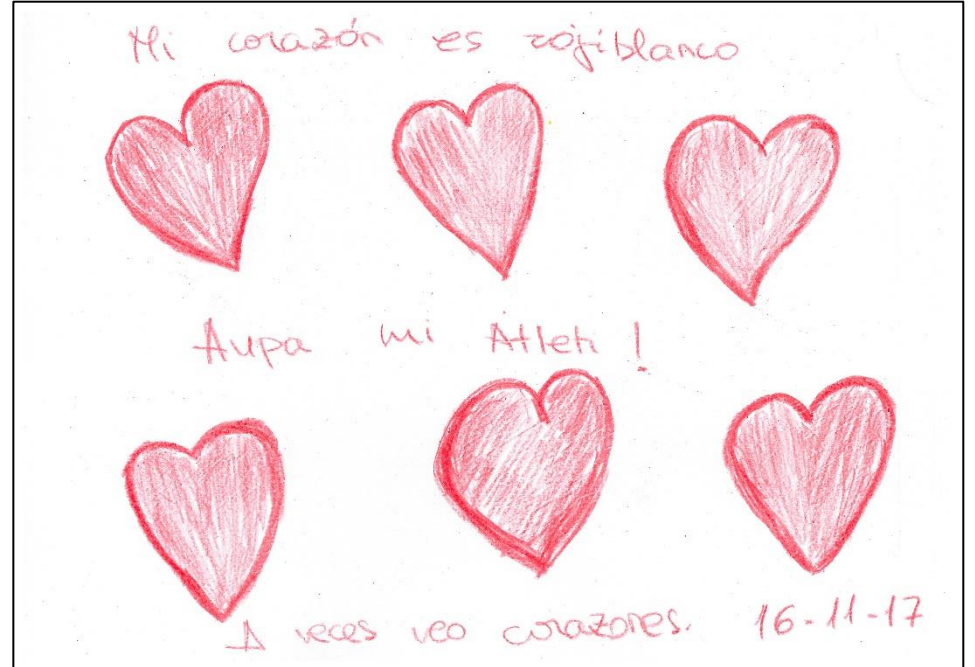 Mi corazón es rojiblanco
Aupa mi Atleti !
A veces veo corazones. 16-11-17